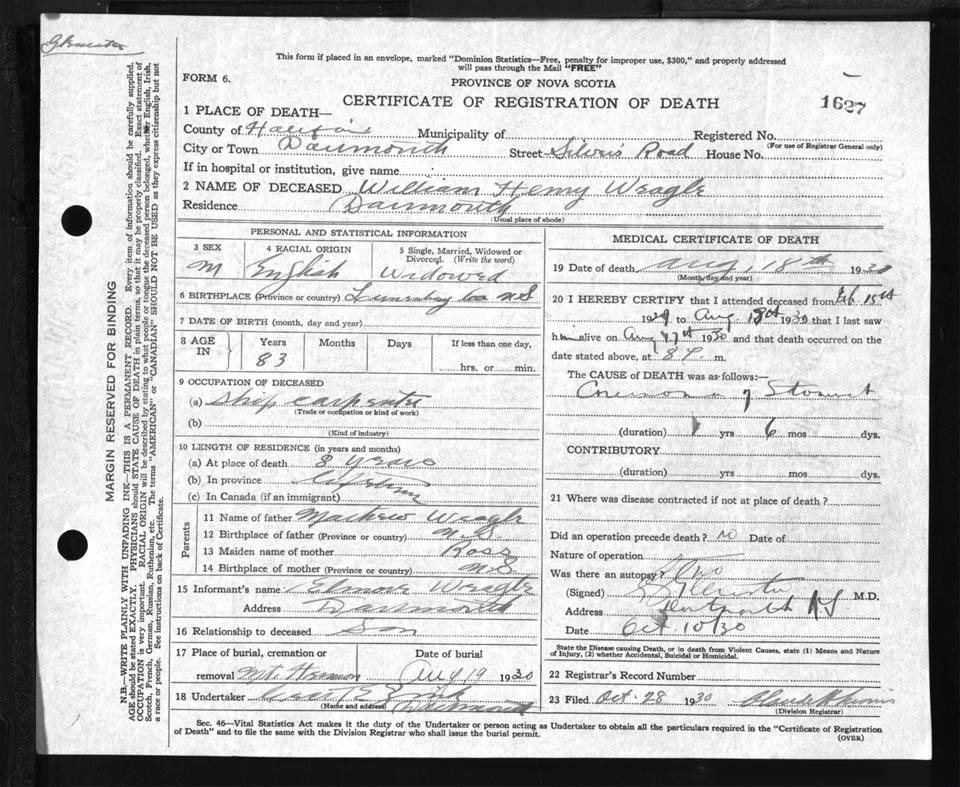 This form if placed in an envelope, marked "Dominion Statistics—Free, penalty for improper use, $300," and properly addressed
will pass through the Mail "FREE"
FORM 6.
PROVINCE OF NOVA SCOTIA
CERTIFICATE OF REGISTRATION OF DEATH
1627
1 PLACE OF DEATH—
County of Halifax Municipality of Registered No.
(For use of Registrar General only)
City or Town Dartmouth Street Silvers Road House No.
If in hospital or institution, give name
2 NAME OF DECEASED William Henry Weagle
Residence Dartmouth
(Usual place of abode)
PERSONAL AND STATISTICAL INFORMATION
3 SEX 4 RACIAL ORIGIN 5 Single, Married, Widowed or Divorced. (Write the word)
M English Widowed
6 BIRTHPLACE (Province or country) Lunenburg Co. N.S
7 DATE OF BIRTH (month, day and year)
8 AGE IN Years Months Days If less than one day,
83 hrs. or min.
9 OCCUPATION OF DECEASED
(a) Ship carpenter
(Trade or occupation or kind of work)
(b)
(Kind of industry)
10 LENGTH OF RESIDENCE (in years and months)
(a) At place of death 8 years
(b) In province Lifetime
(c) In Canada (if an immigrant)
Parents
11 Name of father Mathew Weagle
12 Birthplace of father (Province or country) N.S.
13 Maiden name of mother Ross
14 Birthplace of mother (Province or country) N.S
15 Informant's name Weagle
Address Dartmouth
16 Relationship to deceased Son
17 Place of burial, cremation or removal Mt. Hermon
Date of burial Aug 19 1930
18 Undertaker
(Name and address) Dartmouth
MEDICAL CERTIFICATE OF DEATH
19 Date of death Aug. 18th 1930
(Month, day and year)
20 I HEREBY CERTIFY that I attended deceased from Feb 15th
1929 to Aug 18th 1930 that I last saw
him alive on Aug 17th 1930 and that death occurred on the
date stated above, at 8 P. m.
The CAUSE of DEATH was as follows:—
Carcinoma of Stomach
(duration) 1 yrs 6 mos dys.
CONTRIBUTORY
(duration) yrs. mos. dys.
21 Where was disease contracted if not at place of death?
Did an operation precede death? no Date of
Nature of operation
Was there an autopsy? no
(Signed) M.D.
Address Dartmouth N S
Date Oct. 10/30
State the Disease causing Death, or in death from Violent Causes, state (1) Means and Nature
of Injury, (2) whether Accidental, Suicidal or Homicidal.
22 Registrar's Record Number
23 Filed Oct. 28 1930
(Division Registrar)
Sec. 46—Vital Statistics Act makes it the duty of the Undertaker or person acting as Undertaker to obtain all the particulars required in the "Certificate of Registration
of Death" and to file the same with the Division Registrar who shall issue the burial permit.
(OVER)
MARGIN RESERVED FOR BINDING
N.B.—WRITE PLAINLY WITH UNFADING INK—THIS IS A PERMANENT RECORD. Every item of information should be carefully supplied.
AGE should be stated EXACTLY. PHYSICIANS should STATE CAUSE OF DEATH in plain terms, so that it may be properly classified. Exact statement of
OCCUPATION is very important. RACIAL ORIGIN will be described by stating to what people or tongue the deceased person belonged, whether English, Irish,
Scotch, French, German, Russian, Ruthenian, etc. The terms "AMERICAN" or "CANADIAN" SHOULD NOT BE USED as they express citizenship but not
a race or people. See instructions on back of Certificate.